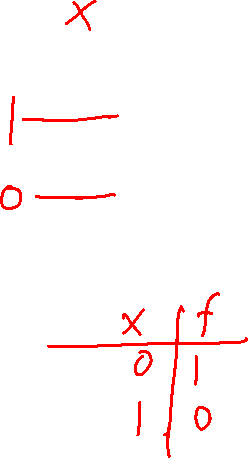 x
1
0
x f
0 1
1 0